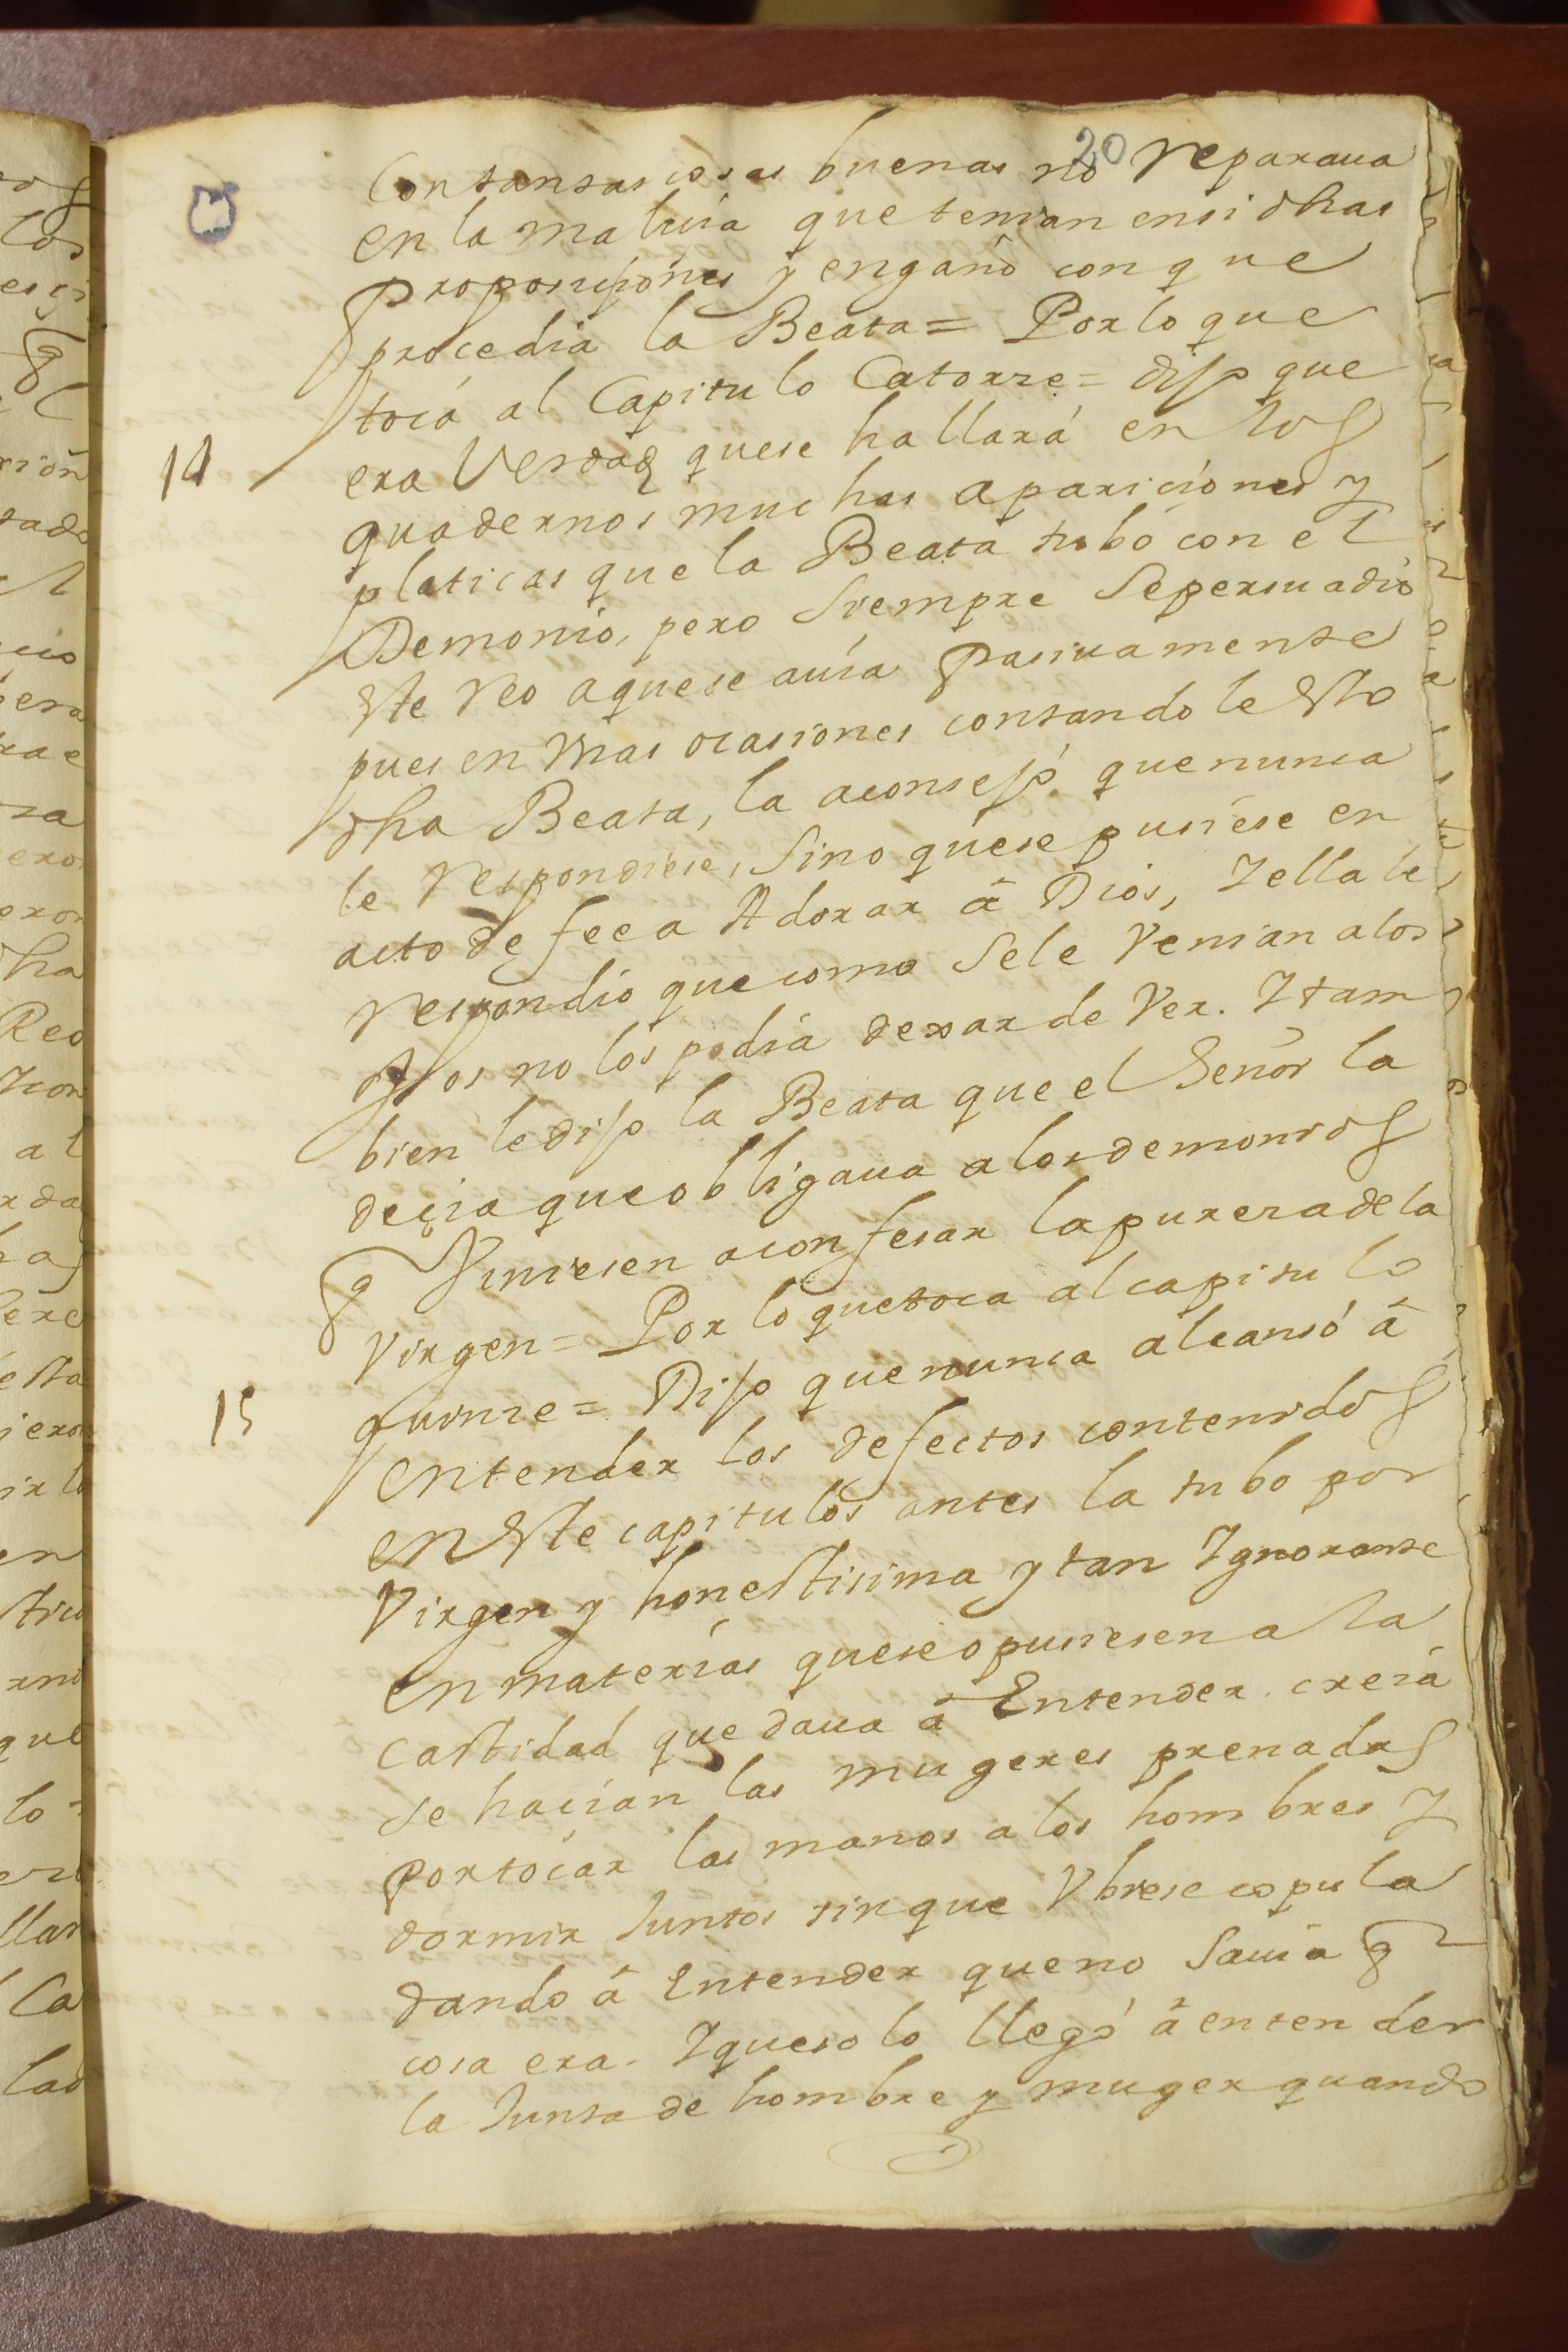 20
Con tantas cosas buenas no reparaua
en la malicia que tenian en si dhas
proposiçiones y engaño con que
procedia la Beata = Por lo que
toca al Capitulo Catorze = dijo que
14
era Verdad que se hallará en los
quadernos muchas apariciones y
platicas que la Beata tubo con el
Demonio, pero siempre se persuadio
este reo a que se auia pasiuamente
pues en Vnas ocasiones contandole esto
dha Beata, la aconsejó que nunca
le respondiese, sino que se pusiese en
acto de fee a Adorar â Dios, Y ella le
respondio que como se le Venian a los
ojos no los podia dexar de Ver. Y tam
bien le dijo la Beata que el Señor la
deçia que obligaua a los demonios
q Viniesen a confesar la pureza de la
Virgen = Por lo que toca al capitulo
15
quinze = Dijo que nunca alcansó â
entender los defectos contenidos
en este capitulos antes la tubo por
Virgen y honestisima y tan Ygnorante
en materias que se opusiesen a la
castidad que daua â Entender creia
se haçian las mugeres prenadas
por tocar las manos a los hombres y
dormir Juntos sin que Vbiese copula
dando â Entender que no sauia q
cosa era. Y que solo llegó â entender
la Junta de hombre y muger quando